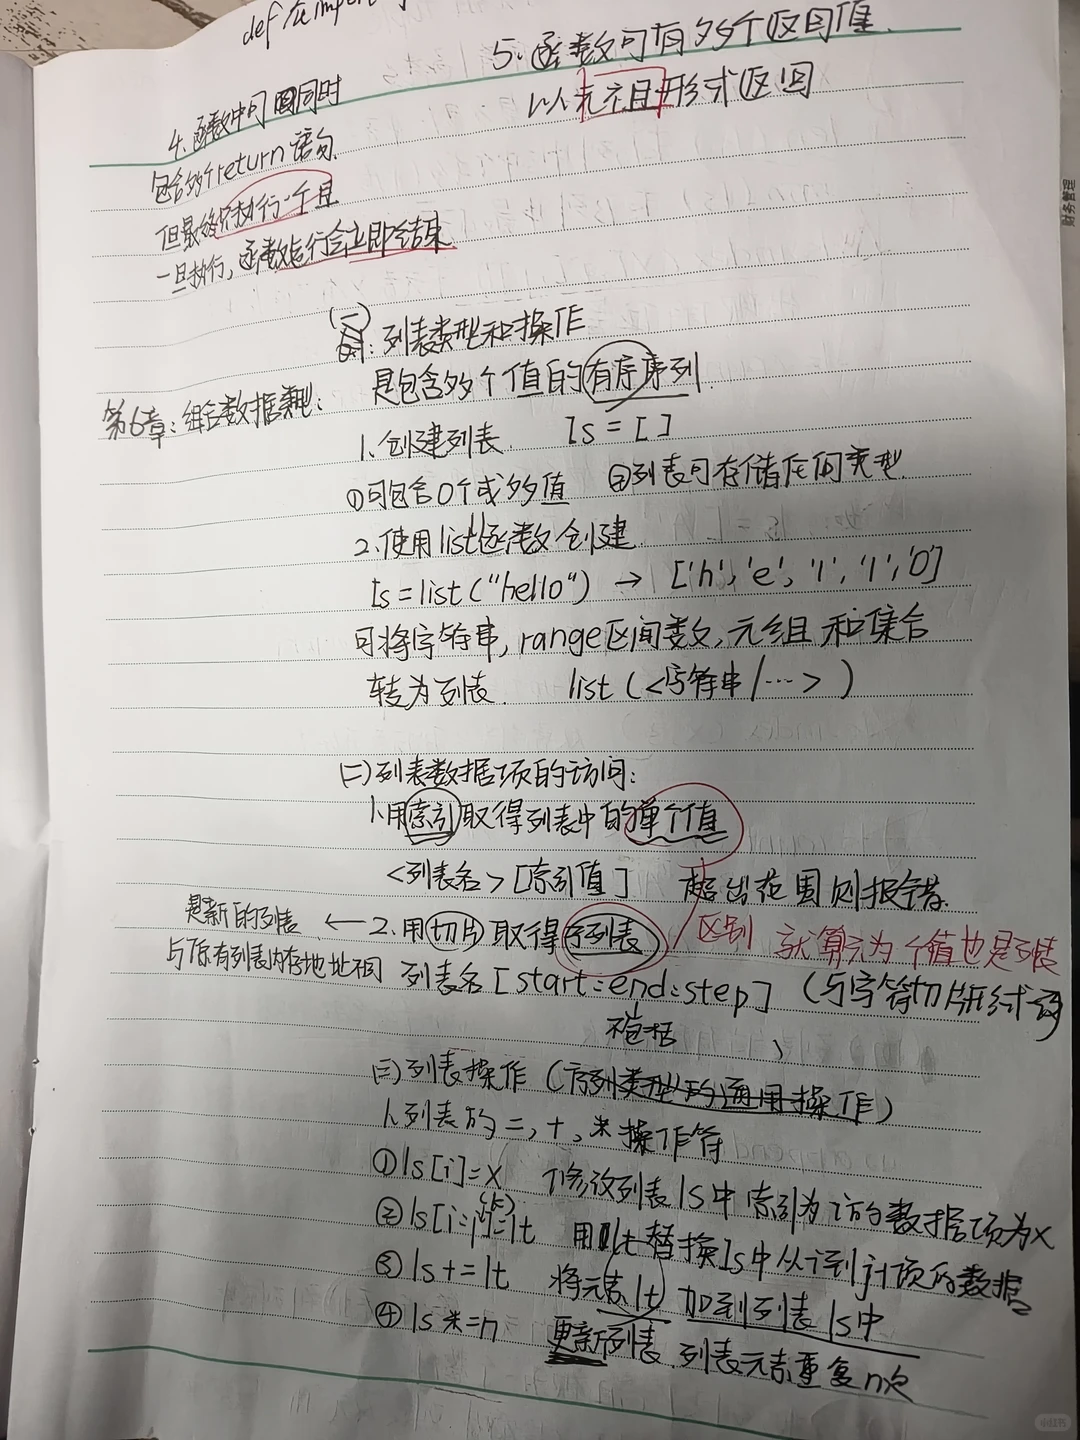 5.函数可有多个返回值.
以元组形式返回
4.函数中可同时
包含多个return语句.
但最终只执行一个且
一旦执行,函数运行会立即结束
(一)
列表类型和操作
第6章:组合数据类型:
是包含多个值的有序序列.
1.创建列表. ls=[]
①可包含0个或多值 ②列表可存储任何类型.
2.使用list函数创建.
ls=list("hello") → ['h','e','l','l','o']
可将字符串,range区间数,元组和集合
转为列表. list(<字符串/…>)
(二)列表数据项的访问:
1.用索引取得列表中的单个值
<列表名>[索引值] 超出范围则报错.
是新的列表 ← 2.用切片取得子列表 区别 就算只为一个值也是列表
与原有列表内存地址不同 列表名[start:end:step] (与字符切片形式
不包括
(三)列表操作(序列类型的通用操作)
1.列表的=,+,*操作符
①ls[i]=x 修改列表ls中索引为i的数据项为x
②ls[i:j]=lt 用lt替换ls中从i到j项的数据
③ls+=lt 将元素lt加到列表ls中
④ls*=n 更新列表.列表元素重复n次
财务管理